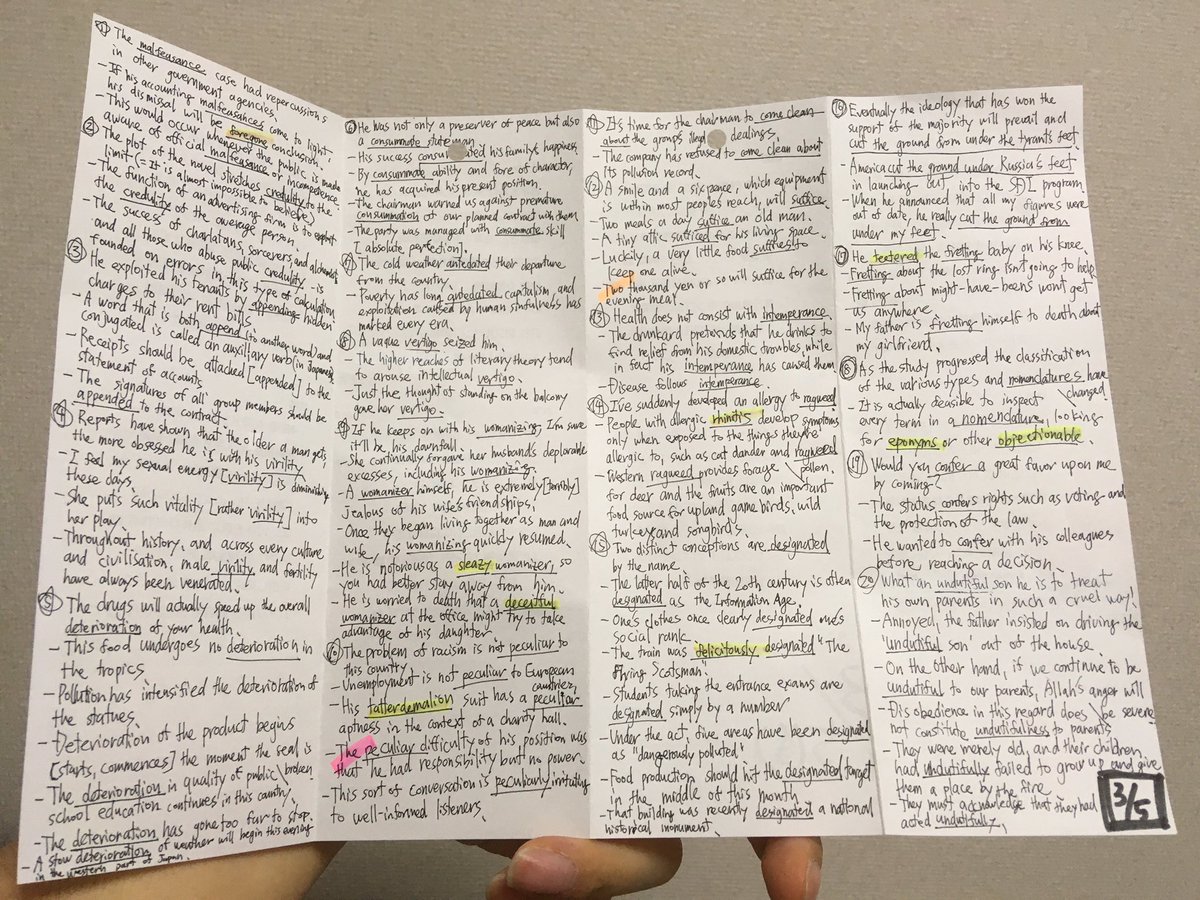 ① The malfeasance case had repercussions
in other government agencies.
- If his accounting malfeasances come to light,
his dismissal will be foregone conclusion.
- This would occur whenever the public is made
aware of official malfeasance or incompetence.
② The plot of the novel stretches credulity to the
limit (= It is almost impossible to believe)
- The function of an advertising firm is to exploit
the credulity of the average person.
- The success of charlatans, sorcerers, and alchemists
and all those who abuse public credulity - is
founded on errors in this type of calculation
③ He exploited his tenants by appending hidden
charges to their rent bills
- A word that is both append (in another word) and
conjugated is called an auxiliary verb (in Japanese
- Receipts should be attached [appended] to the
statement of accounts
- The signatures of all group members should be
appended to the contract.
④ Reports have shown that the older a man gets,
the more obsessed he is with his virility
- I feel my sexual energy [virility] is diminishing
these days.
- She puts such vitality [rather virility] into
her play.
- Throughout history, and across every culture
and civilisation, male virility and fertility
have always been venerated.
⑤ The drugs will actually speed up the overall
deterioration of your health.
- This food undergoes no deterioration in
the tropics.
- Pollution has intensified the deterioration of
the statues.
- Deterioration of the product begins
[starts, commences] the moment the seal is
- The deterioration in quality of public \ broken
school education continues in this country
- The deterioration has gone too far to stop.
- A slow deterioration of weather will begin this evening
in the western part of Japan.
⑥ He was not only a preserver of peace but also
a consummate statesman
- His success consummated his family's happiness
- By consummate ability and fore of character,
he has acquired his present position.
- The chairman warned us against premature
consummation of our planned contract with them
- The party was managed with consummate skill
[absolute perfection].
⑦ The cold weather antedated their departure
from the country.
- Poverty has long antedated capitalism, and
exploitation caused by human sinfulness has
marked every era.
⑧ A vague vertigo seized him.
- The higher reaches of literary theory tend
to arouse intellectual vertigo.
- Just the thought of standing on the balcony
gave her vertigo.
⑨ If he keeps on with his womanizing, I'm sure
it'll be his downfall.
- She continually forgave her husbands deplorable
excesses, including his womanizing.
- A womanizer himself, he is extremely [terribly]
jealous of his wife's friendships.
- Once they began living together as man and
wife, his womanizing quickly resumed.
- He is notorious as a sleazy womanizer, so
you had better stay away from him.
- He is worried to death that a deceitful
womanizer at the office might try to take
advantage of his daughter
⑩ The problem of racism is not peculiar to
this country
- Unemployment is not peculiar to European
countries,
- His tatterdemalion suit has a peculiar
aptness in the context of a charity hall.
- The peculiar difficulty of his position was
that he had responsibility but no power.
- This sort of conversation is peculiarly irritating
to well-informed listeners.
⑪ It's time for the chairman to come clean
about the groups illegal dealings.
- The company has refused to come clean about
its pollution record.
⑫ A smile and a sixpence, which equipment
is within most peoples reach, will suffice.
- Two meals a day suffice an old man.
- A tiny attic sufficed for his living space.
- Luckily, a very little food suffices to
keep one alive.
- Two thousand yen or so will suffice for the
evening meal.
⑬ Health does not consist with intemperance.
- The drunkard pretends that he drinks to
find relief from his domestic troubles, while
in fact his intemperance has caused them
- Disease follows intemperance.
⑭ I've suddenly developed an allergy to ragweed
- People with allergic rhinitis develop symptoms
only when exposed to the things they're
allergic to, such as cat dander and ragweed
- Western ragweed provides forage \ pollen.
for deer and the fruits are an important
food source for upland game birds, wild
turkey and songbirds.
⑮ Two distinct conceptions are designated
by the name.
- The latter half of the 20th century is often
designated as the Information Age.
- One's clothes once clearly designated one's
social rank.
- The train was felicitously designated "The
Flying Scotsman"
- Students taking the entrance exams are
designated simply by a number
- Under the act, five areas have been designated
as "dangerously polluted."
- Food production should hit the designated target
in the middle of this month
- That building was recently designated a national
historical monument.
⑯ Eventually the ideology that has won the
support of the majority will prevail and
cut the ground from under the tyrants feet.
- America cut the ground under Russia's feet
in launching out into the SDI program.
- When he announced that all my figures were
out of date, he really cut the ground from
under my feet.
⑰ He teetered the fretting baby on his knee.
- Fretting about the lost ring isn't going to help.
- Fretting about might-have-beens won't get
us anywhere.
- My father is fretting himself to death about
my girlfriend.
⑱ As the study progressed the classification
of the various types and nomenclatures have
changed
- It is actually feasible to inspect
every term in a nomenclature, looking
for eponyms or other objectionable.
⑲ Would you confer a great favor upon me
by coming?
- The status confers rights such as voting and
the protection of the law.
- He wanted to confer with his colleagues
before reaching a decision.
⑳ What an undutiful son he is to treat
his own parents in such a cruel way!
- Annoyed, the father insisted on driving the
undutiful son out of the house.
- On the other hand, if we continue to be
undutiful to our parents, Allah's anger will
- Disobedience in this regard does \ be severe
not constitute undutifulness to parents
- They were merely old, and their children
had undutifully failed to grow up and give
them a place by the fire
- They must acknowledge that they had
acted undutifully.
3/5